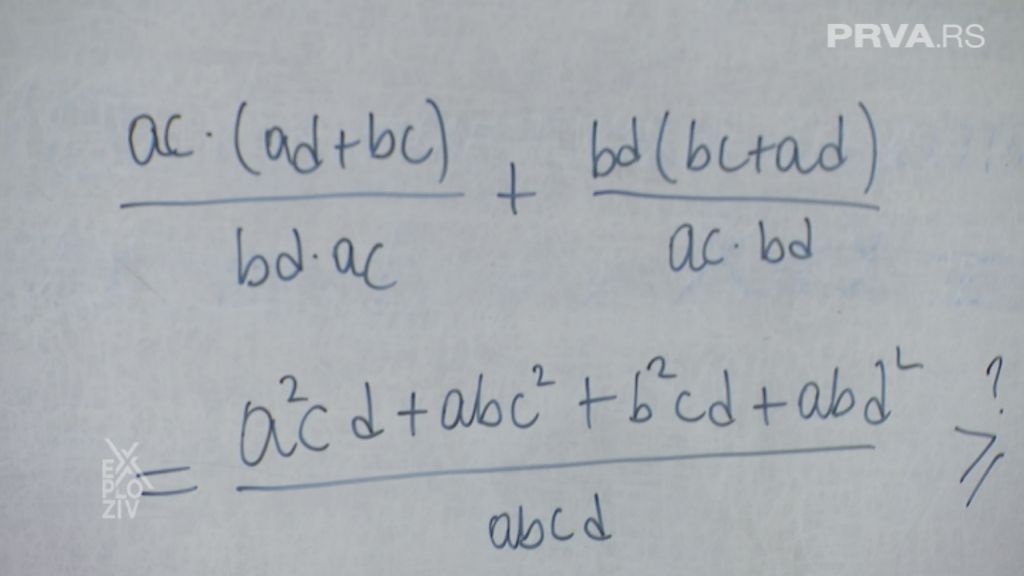 PRVA.RS
ac·(ad+bc) / bd·ac + bd(bc+ad) / ac·bd
= a²cd+abc²+b²cd+abd² / abcd ≥?
EXPLOZIV